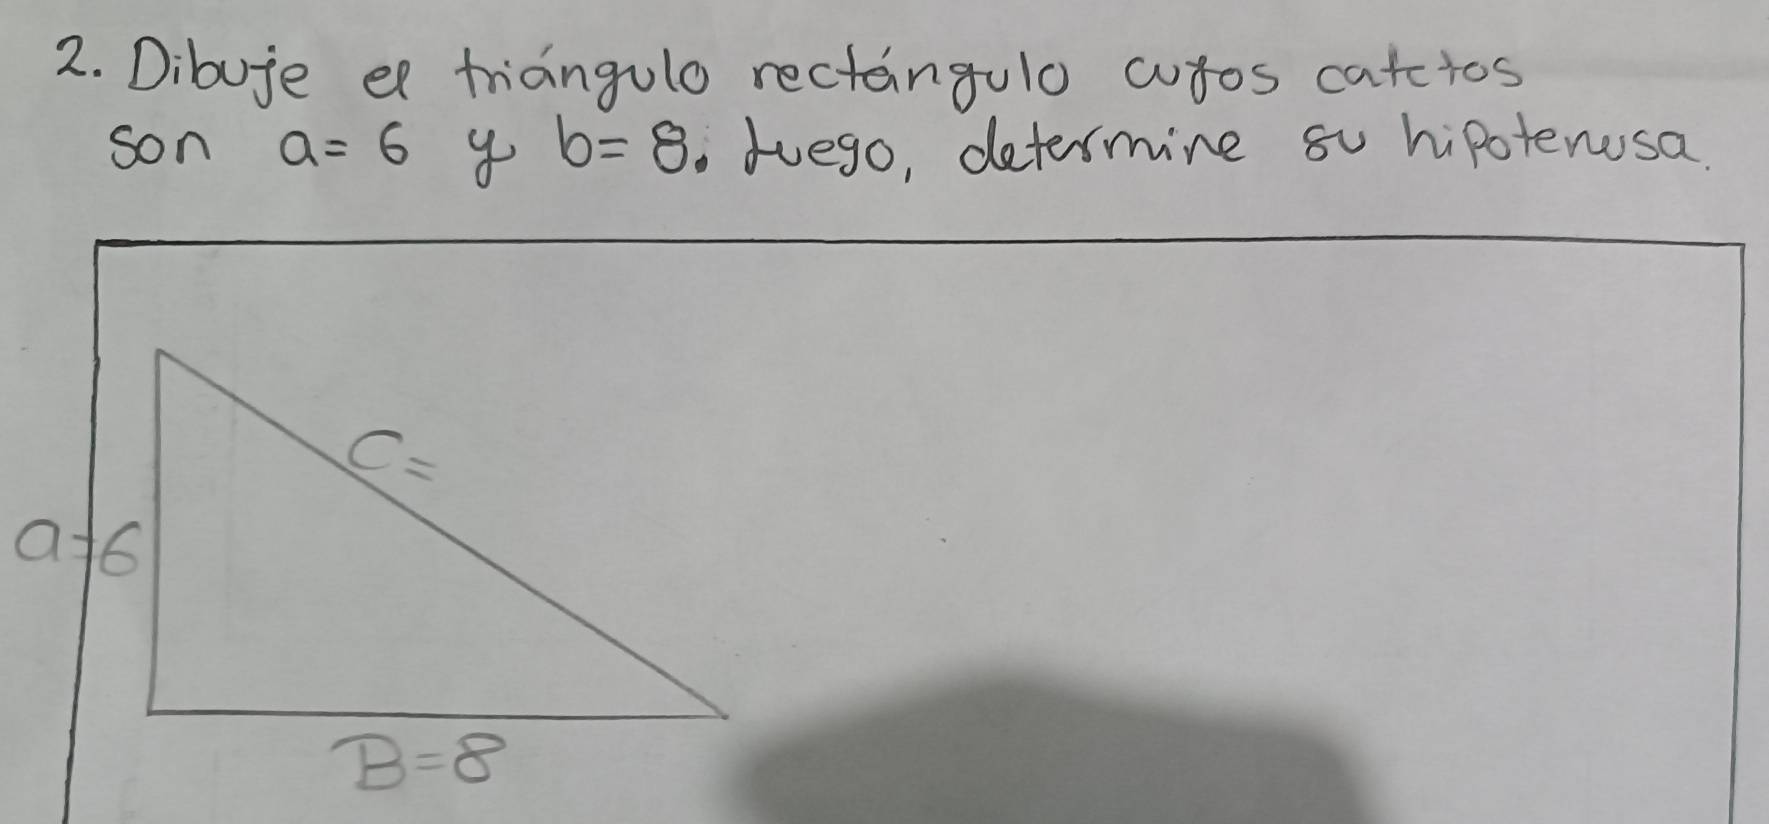 2. Dibuje el triángulo rectángulo cuyos catetos
son a = 6 y b = 8. Luego, determine su hipotenusa.
C =
a = 6
B = 8